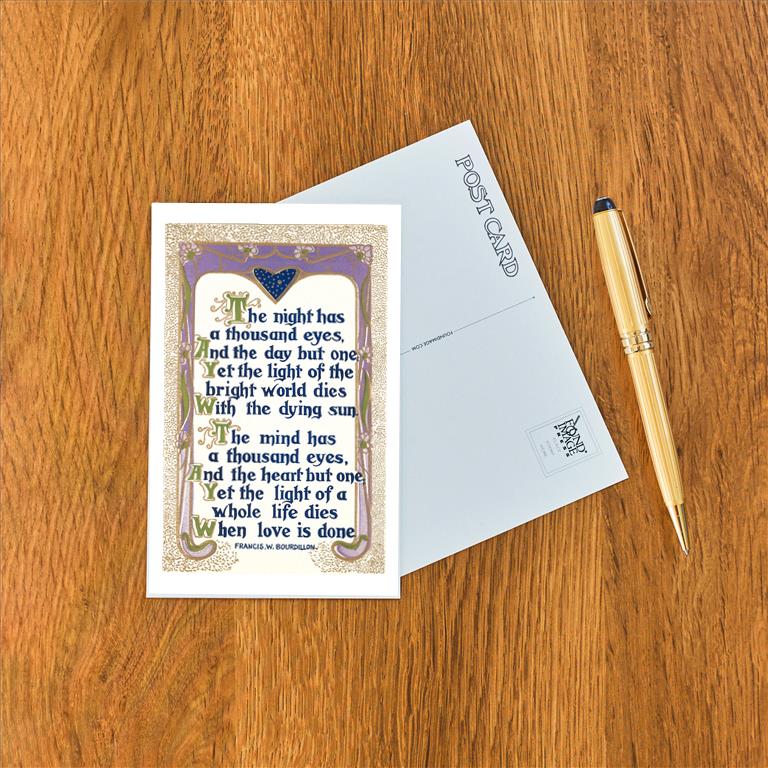 The night has
a thousand eyes,
And the day but one,
Yet the light of the
bright world dies
With the dying sun.
The mind has
a thousand eyes,
And the heart but one,
Yet the light of a
whole life dies
When love is done.
FRANCIS. W. BOURDILLON.
POST CARD
FOUNDIMAGE.COM
FOUND
IMAGE
PRESS